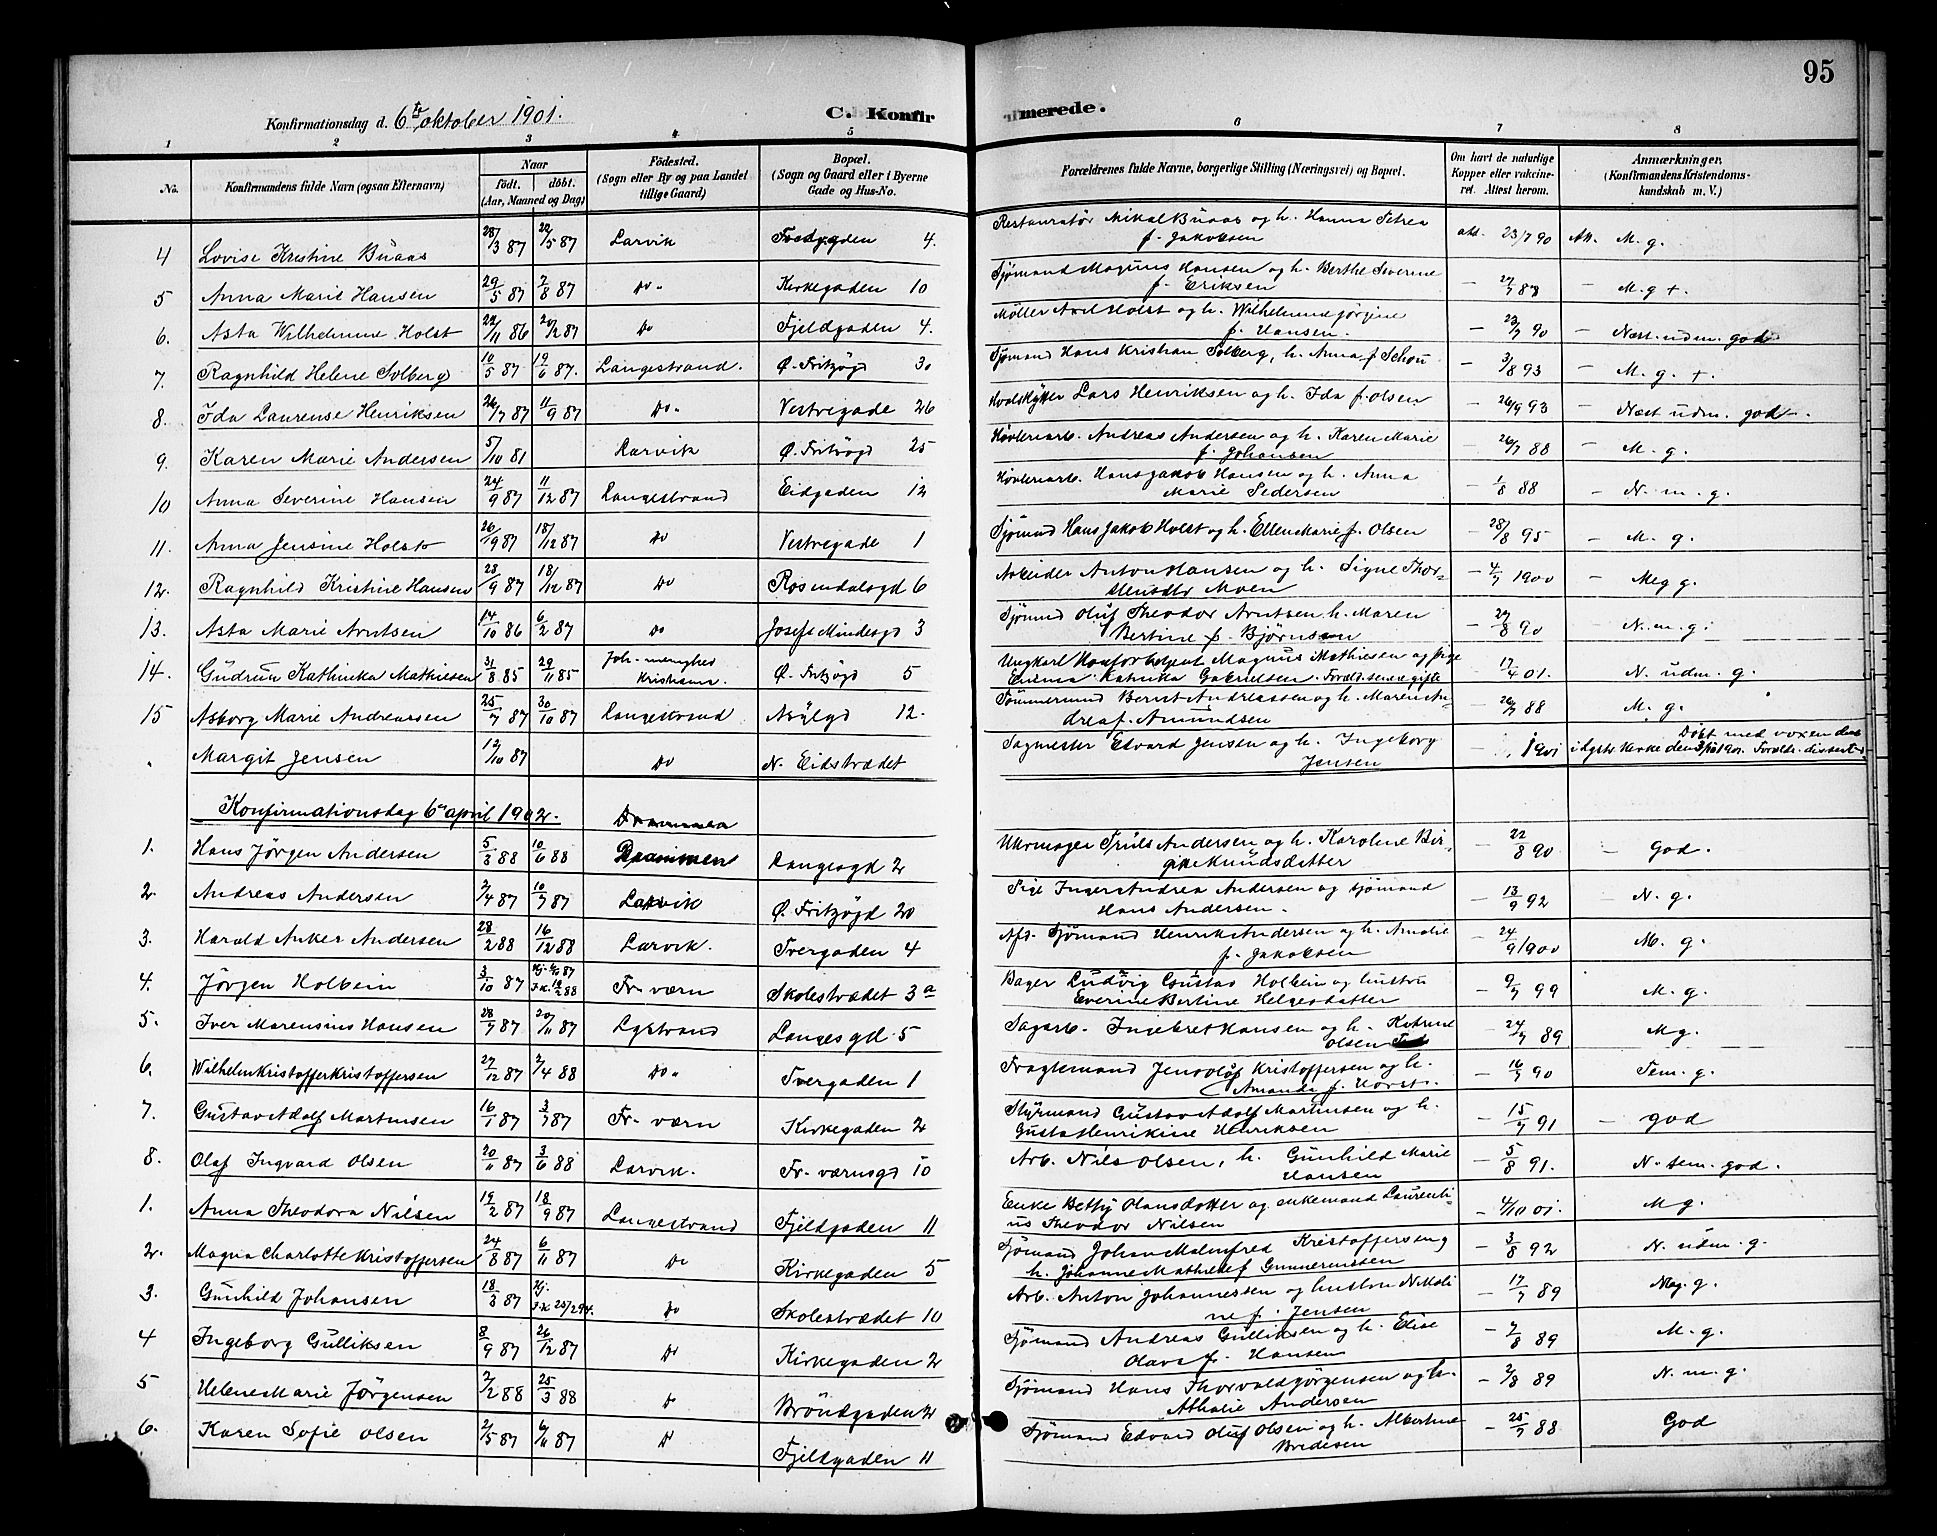 95
Konfirmationsdag d. 6te oktober 1901.
C. Konfirmerede.
1 2 3 4 5 6 7 8
No.
Konfirmandens fulde Navn (ogsaa Efternavn)
Naar
födt. döbt.
(Aar, Maaned og Dag)
Födested.
(Sogn eller By og paa Landet
tillige Gaard)
Bopæl.
(Sogn og Gaard eller i Byerne
Gade og Hus-No.
Forældrenes fulde Navne, borgerlige Stilling (Næringsvei) og Bopæl.
Om havt de naturlige
Kopper eller vakcine-
ret. Attest herom.
Anmærkninger.
(Konfirmandens Kristendoms-
kundskab m. V.)
4 Lovise Kristine Buaas 28/3 87 22/5 87 Larvik 4. Restauratør Mikal Buaas og h. Hanna Petrea att. 23/7 90 M. g.
f. Jakobsen
5 Anna Marie Hansen 29/5 87 7/8 87 Do. Kirkegaden 10 Sjømand Magnus Hansen og h. Berthe Severine – M. g +.
f. Eriksen
6. Asta Wilhelmine Holst 22/11 86 20/2 87 Do Fjeldgaden 4. Møller Axel Holst og h. Wilhelmine Jörgine – 23/7 90 – Næst. udm. god
f. Hansen.
7. Ragnhild Helene Solberg 10/5 87 19/6 87. Langestrand. Ø. Fritzögd 30 Sjømand Hans Kristian Solberg, h. Anna f. Schou – 3/8 93 – M. g. +.
8. Ida Laurense Henriksen 26/7 87 11/9 87 Do. Vestregade 26 Hvalskytter Lars Henriksen og h. Ida f. Olsen – 26/9 93 – Næst udm. god.
9. Karen Marie Andersen 5/10 81 Larvik Ø. Fritzögd 25 Høvleriarb. Andreas Andersen og h. Karen Marie – 26/7 88 – M. g.
f. Johansen
10 Anna Severine Hansen 24/9 87 11/12 87 Langestrand Eidgaden 12 Høvleriarb. Hans Jakob Hansen og h. Anna – 1/8 88 – N. m. g.
Marie Pedersen
11. Anna Jensine Holst 26/9 87 18/12 87 Do Vestregade 1 Sjømand Hans Jakob Holst og h. Ellen Marie f. Olsen – 28/8 95 – M. g.
12. Ragnhild Kristine Hansen 23/9 87 18/12 87 Do Rosendalsgd 6 Arbeider Anton Hansen og h. Signe Thor- – 4/7 1900 – Meg g.
Moen
13. Asta Marie Arntsen 14/10 86 6/2 87 Do Josefs Mindesgd 3 Sjømand Oluf Theodor Arntsen h. Maren – 27/8 90 N. m. g.
Bertine f. Bjørnsen
14. Gudrun Kathinka Mathiesen 31/8 85 29/11 85 Joh. menighed Ø. Fritzögd 5 Ungkarl Magnus Mathiesen og pige – 17/4 01. N. udm. g.
Kristiania Emma Katinka Gabrielsen.
15 Asborg Marie Andreassen 25/7 87 30/10 87 Langestrand Asylgd 12. Tømmermand Bernt Andreassen og h. Maren An- – 26/7 88 M. g.
drea f. Amundsen
" Margit Jensen 12/10 87 Do N. Eidstrædet Sagmester Edvard Jensen og h. Ingeborg 1901 Døbt med voxen daab
Jensen
Konfirmationsdag 6te april 1902.
1. Hans Jørgen Andersen 5/3 88 10/6 88 Drammen Langesgd 2 Uhrmager Truls Andersen og h. Karoline Bir- – 22/8 90 – God.
gitte Knudsdatter
2. Andreas Andersen 2/4 87 10/7 87 Larvik Ø. Fritzögd 20 Pige Inger Andrea Andersen og sjømand – 13/9 92 – N. g.
Hans Andersen.
3. Harald Anker Andersen 28/2 88 16/12 88 Larvik. Tvergaden 4 Afd. Sjømand Henrik Andersen og h. Amalie – 24/9 1900 – M. g.
f. Jakobsen
4. Jörgen Holbein 3/10 87 Fr. værn Skolestrædet 3a Bager Ludvig Gustav Holbein og hustru – 9/7 99 – M. g.
Everine Bertine Helgesdatter
5. Iver Marensius Hansen 28/7 87 20/11 87 Lgstrand Langesgd. 5 Sagarb. Ingebret Hansen og h. Katrine – 24/7 89 M g.
Olsen
6. Wilhelm Kristoffer Kristoffersen 27/12 87 2/4 88 Do. Tvergaden 1 Fragtemand Jens Olaf Kristoffersen og h. – 16/7 90 – Tem. g.
Amanda f. Horst.
7. Gustav Adolf Martinsen 16/1 87 3/7 87 Fr. værn Kirkegaden 2 Styrmand Gustav Adolf Martinsen og h. – 15/7 91 – god
Gusta Henrikine Henriksen
8. Olaf Ingvard Olsen 20/11 87 3/6 88 Larvik. Fr. værnsgd 10 Arb. Nils Olsen, h. Gunhild Marie – 5/8 91. – N. tem. god.
Hansen
1. Anna Theodora Nilsen 19/2 87 18/9 87 Langestrand Fjeldgaden 11 Enke Bethy Olausdatter og enkemand Laurenti- – 4/10 01. M g.
us Theodor Nilsen
2. Magna Charlotte Kristoffersen 24/8 87 6/11 87 Do Kirkegaden 5 Sjømand Johan Malmfred Kristoffersen og – 3/8 92 N. udm. g.
h. Johanne Mathilde f. Gunnerussen
3. Gunhild Johansen 18/3 87 Do Skolestrædet 10 Arb. Anton Johannessen og hustru N. Mali- – 17/7 89 Meg. g.
ne f. Jensen
4 Ingeborg Gulliksen 8/9 87 26/12 87 Do Kirkegaden 2 Sjømand Andreas Gulliksen og h. Elise – 7/8 89 M. g.
Olava f. Hansen
5 Helene Marie Jörgensen 2/2 88 25/3 88 Do Bröndgaden 2 Sjømand Hans Thorvald Jörgensen og h. – 2/8 89 N. m. g.
Athalie Andersen
6. Karen Sofie Olsen 2/5 87 6/11 87 D Fjeldgaden 11 Sjømand Edvard Oluf Olsen og h. Albertine – 25/7 88 God
Bredesen